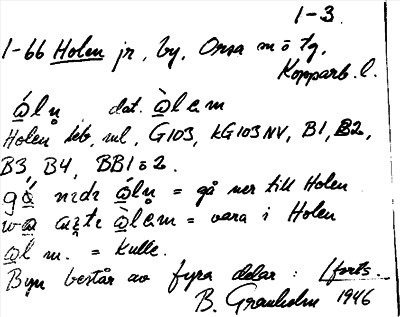 1-3.
1-66 Holen jr, by, Orsa sn o tg,
Kopparb. l.
ǫ́lṇ dat. ǫ̀lem
Holen ib, ml, G103, kG103NV, B1, B2,
B3, B4, BB1 o 2.
ǫ́lṇ = gå ner till Holen
ǫ̀lem = vara i Holen
ǫl m. = Kulle.
Byn består av fyra delar: /forts.
B. Granholm 1946